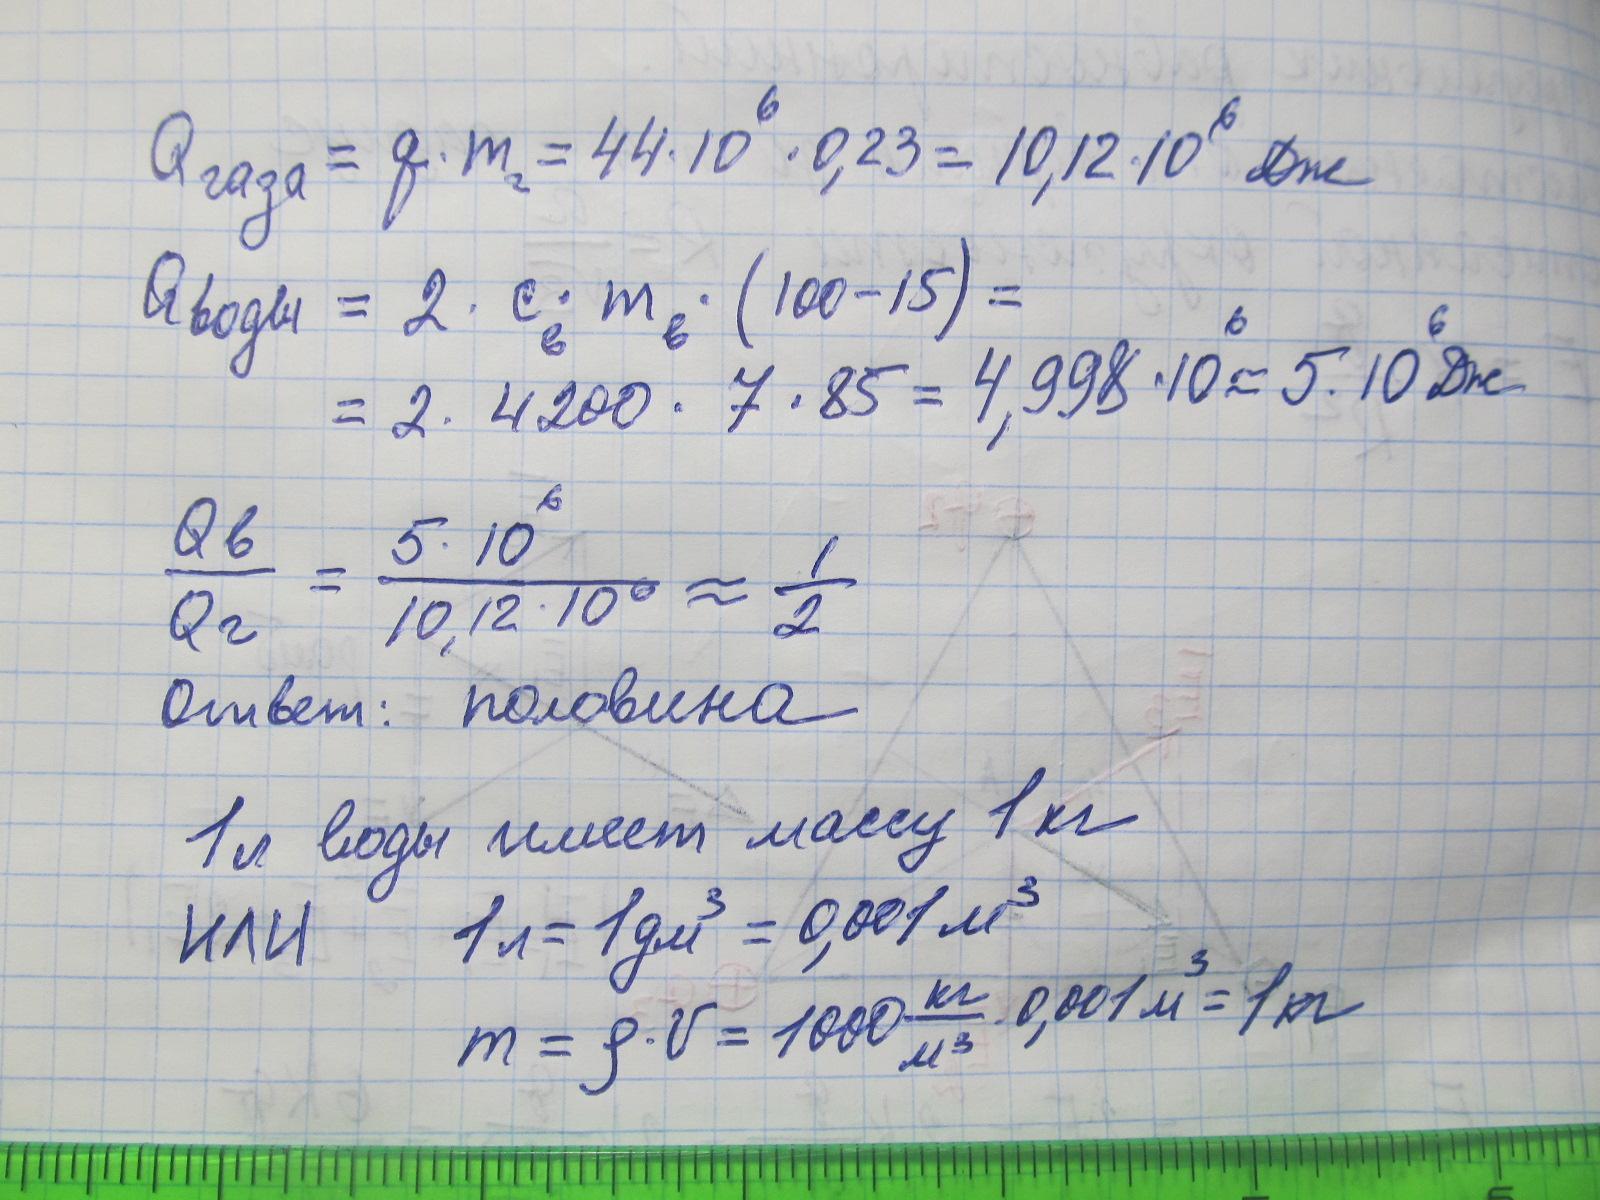 Qгаза = q · mг = 44·10⁶ · 0,23 = 10,12·10⁶ Дж
Qводы = 2 · cв · mв · (100-15) =
= 2 · 4200 · 7 · 85 = 4,998 · 10⁶ ≈ 5 · 10⁶ Дж
Qв/Qг = 5·10⁶/10,12·10⁶ ≈ 1/2
Ответ: половина
1л воды имеет массу 1кг
ИЛИ 1л = 1дм³ = 0,001м³
m = ρ·V = 1000 кг/м³ · 0,001м³ = 1кг